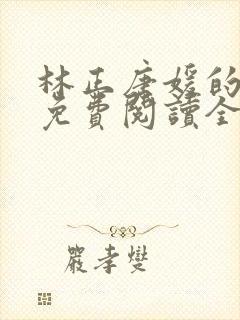 林正唐媛的
免費閱讀全
嚴孝燮